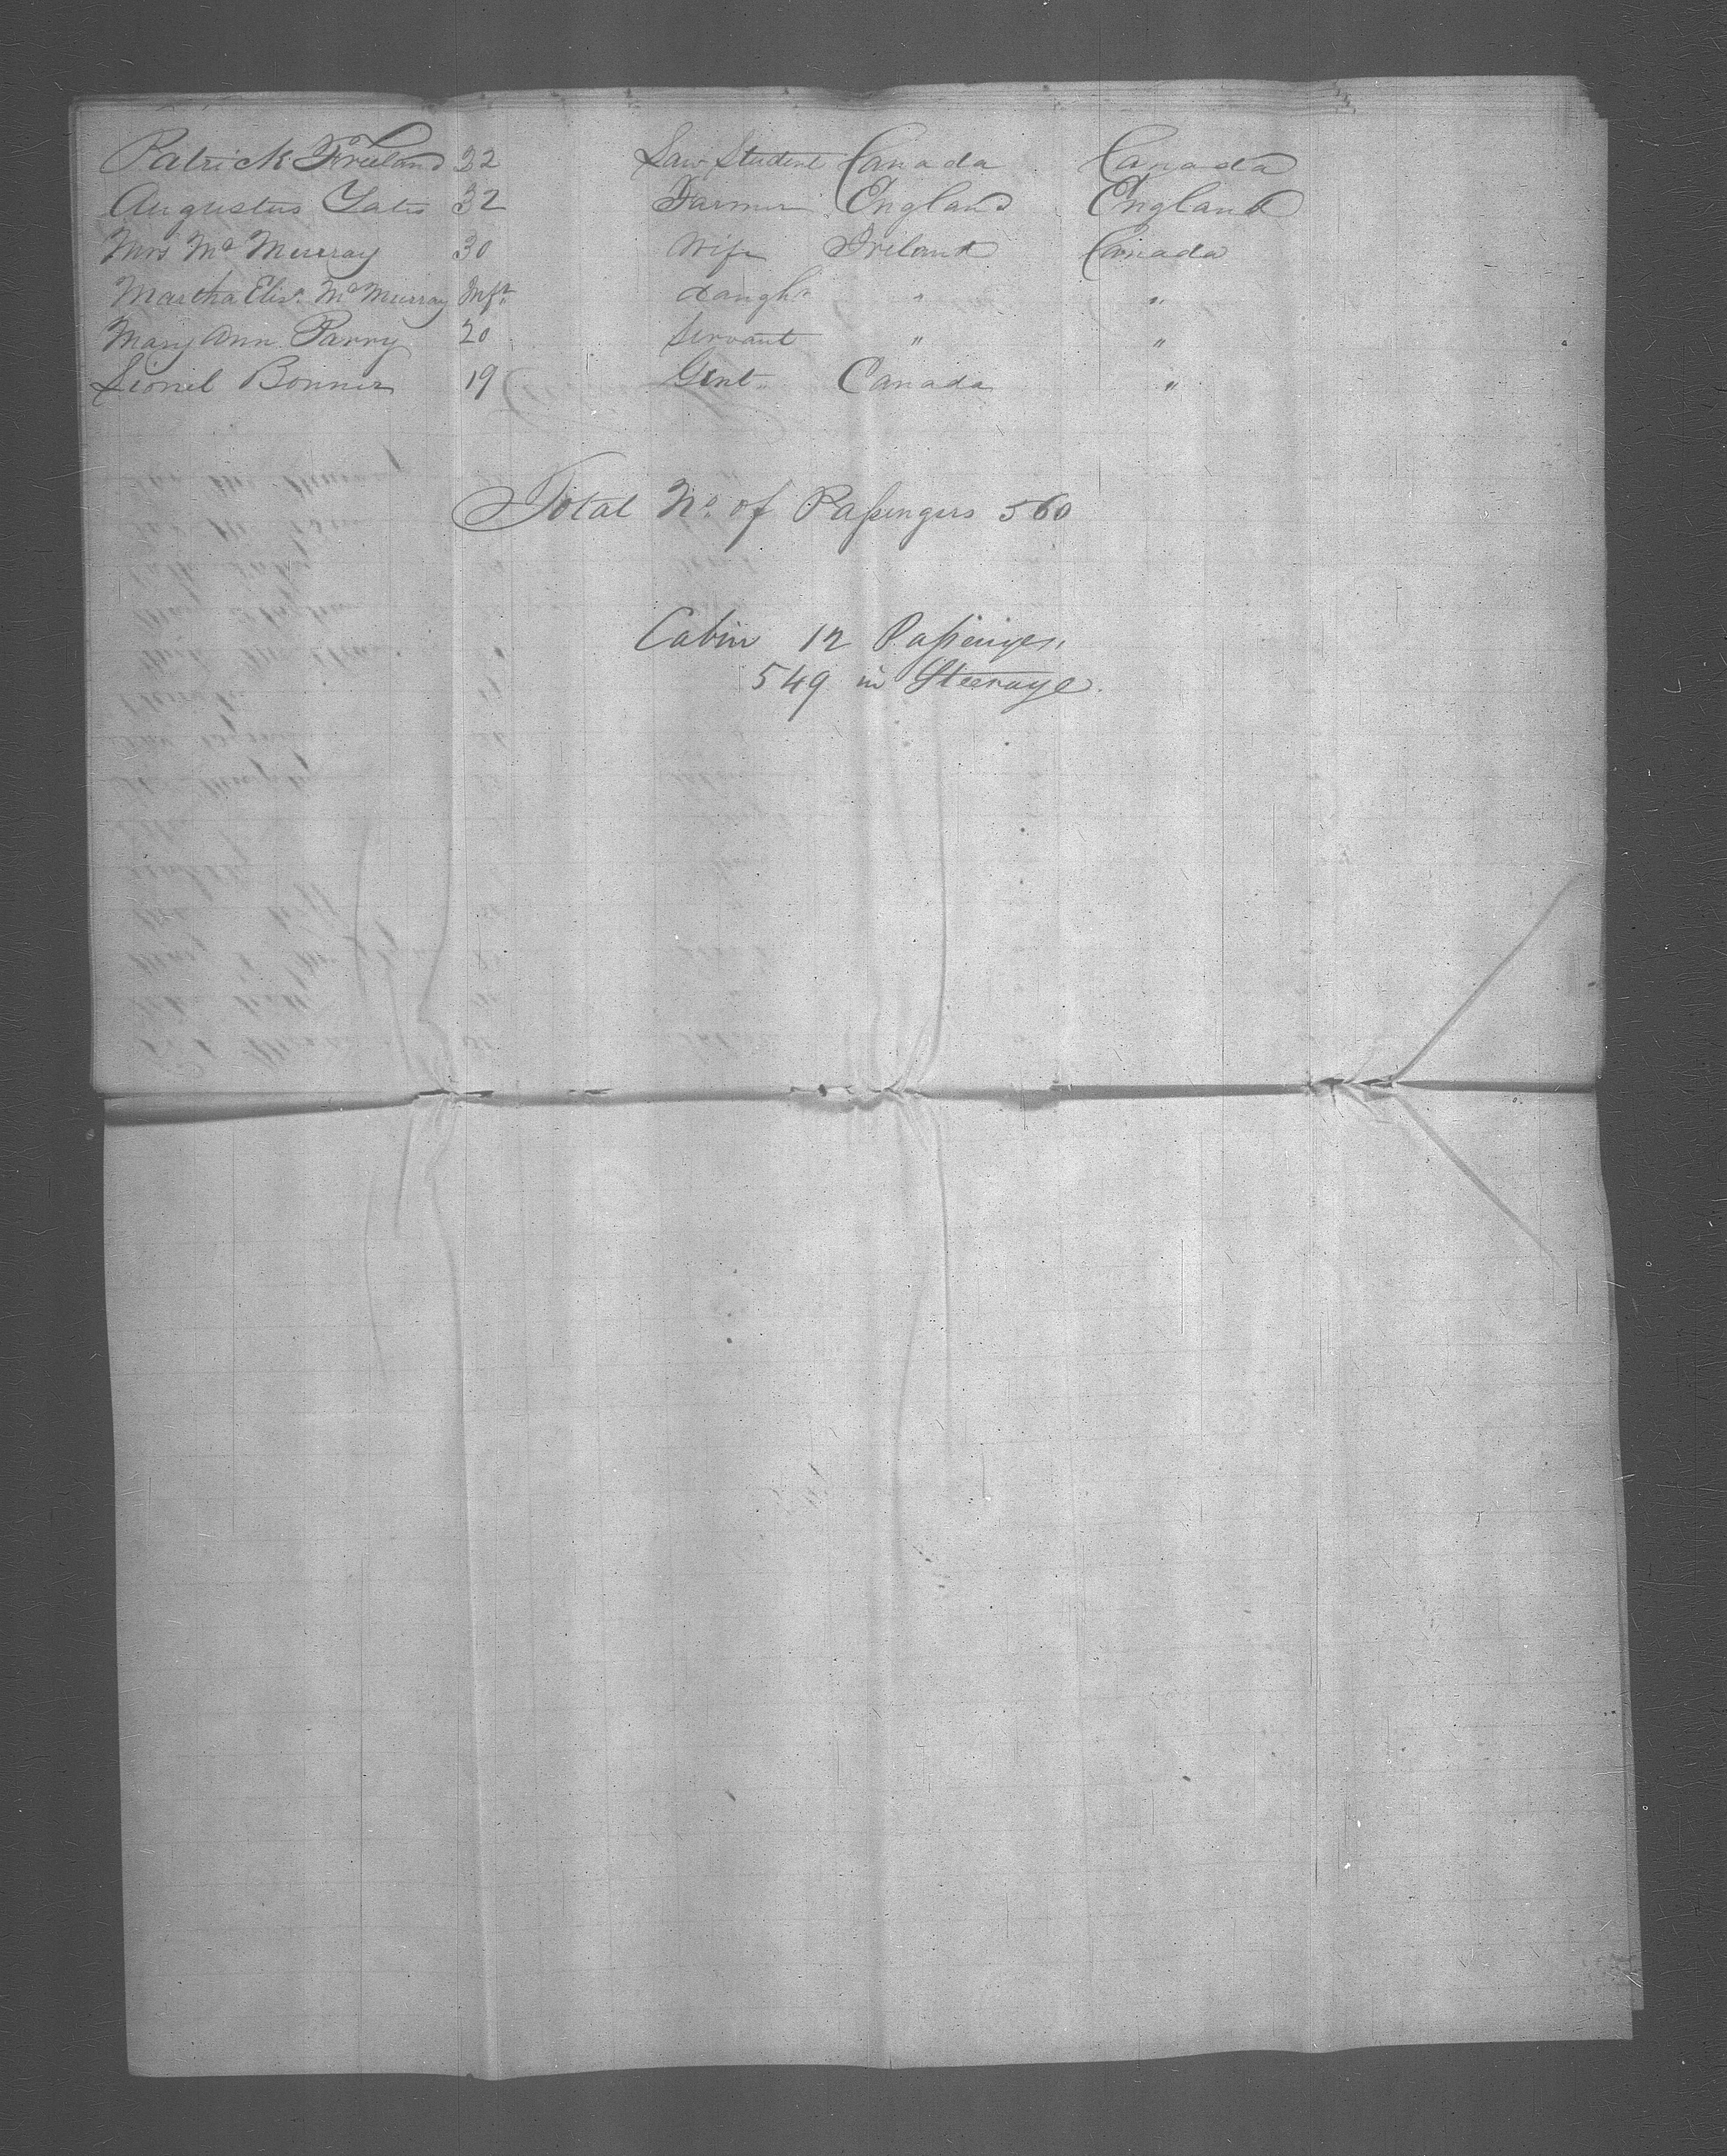 Patrick Freeland 32 Law Student Canada Canada
Augustus Yates 32 Farmer England England
Mrs McMurray 30 Wife Ireland Canada
Martha Elisa. McMurray Inft. daughr " "
Mary Ann Parry 20 Servant " "
Lionel Bonner 19 Gent. Canada "
Total No. of Passengers 560
Cabin 12 Passengers
549 in Steerage.